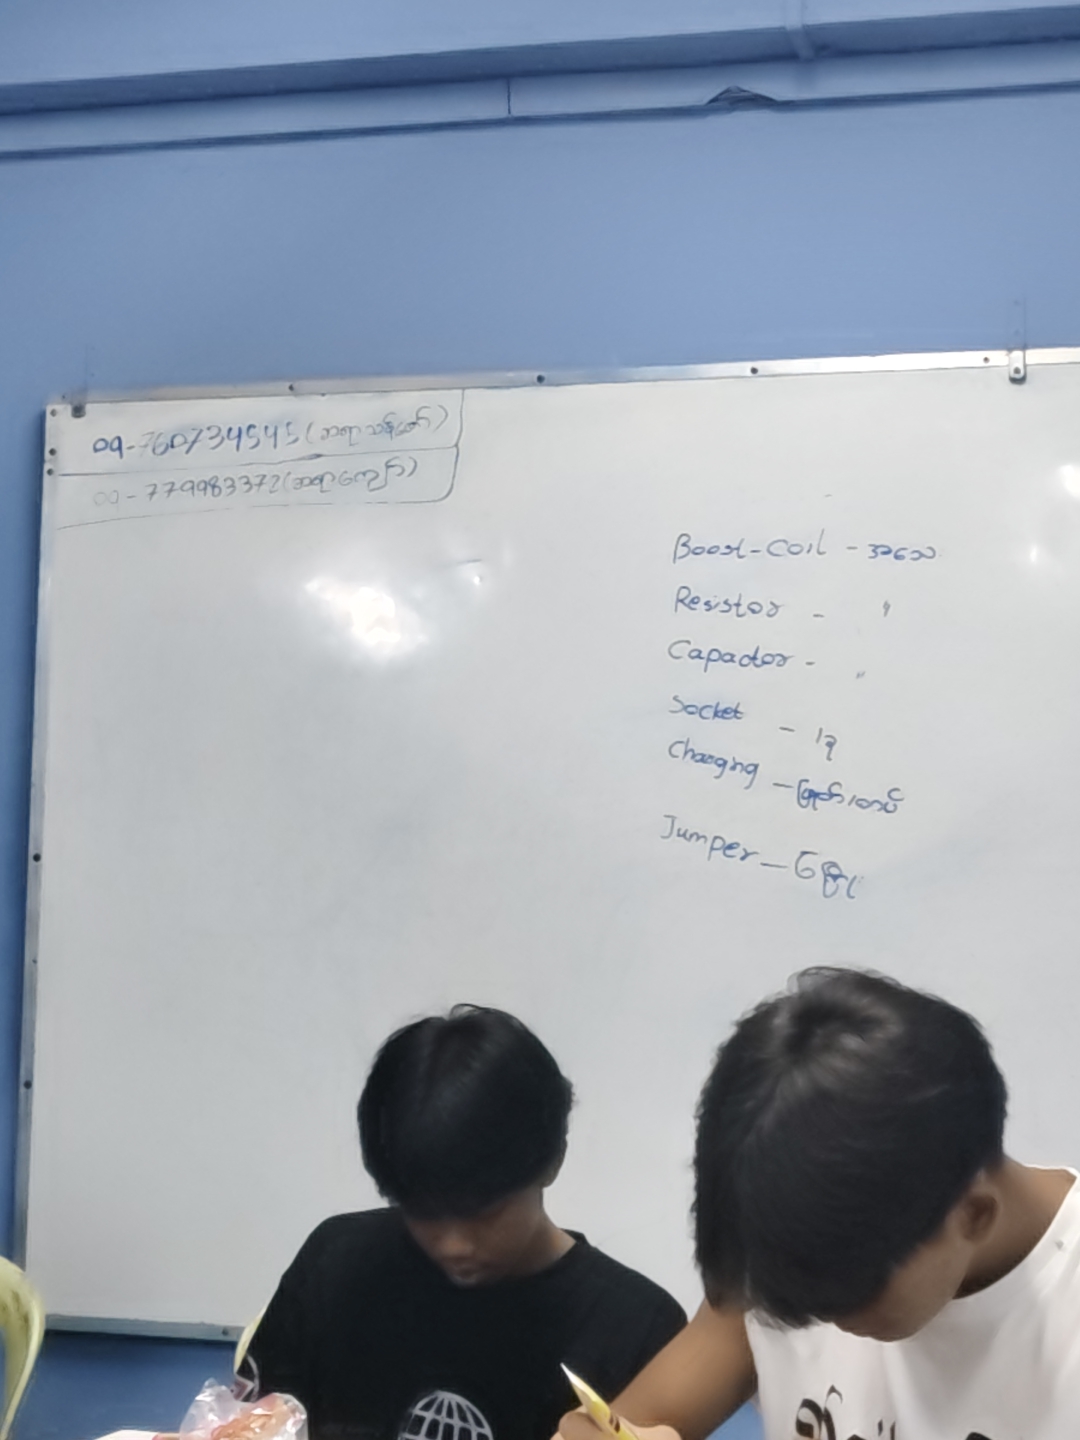 09-760734545 (ဆရာသန့်ဇော်)
09-779983372 (ဆရာကျော်)
Boost-Coil - အသေး
Resistor - "
Capactor - "
Socket - ၁ခု
Charging - ဖြုတ်/တပ်
Jumper - ကြိုး